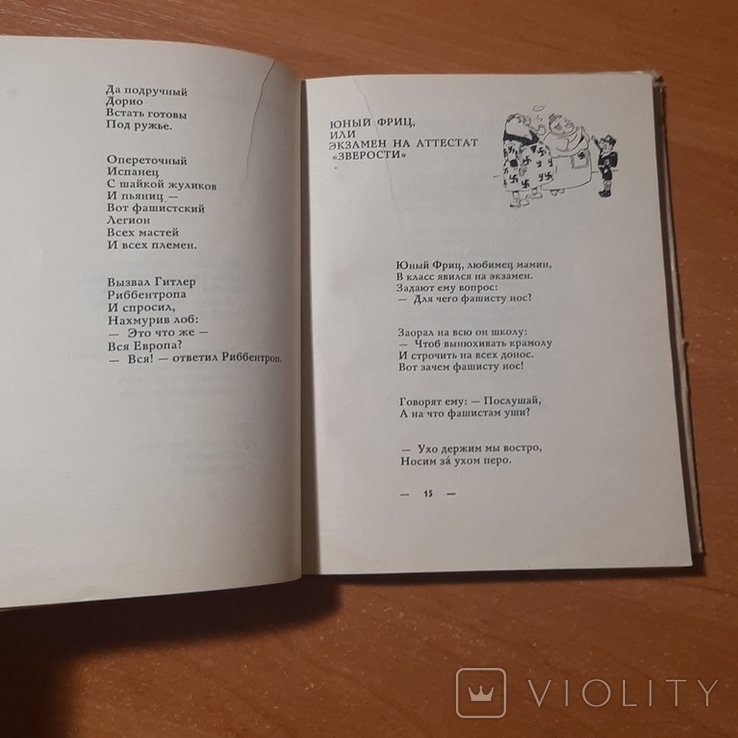 Да подручный
Дорио
Встать готовы
Под ружье.
Опереточный
Испанец
С шайкой жуликов
И пьяниц —
Вот фашистский
Легион
Всех мастей
И всех племен.
Вызвал Гитлер
Риббентропа
И спросил,
Нахмурив лоб:
— Это что же —
Вся Европа?
— Вся! — ответил Риббентроп.
ЮНЫЙ ФРИЦ,
ИЛИ
ЭКЗАМЕН НА АТТЕСТАТ
«ЗВЕРОСТИ»
Юный Фриц, любимец мамин,
В класс явился на экзамен.
Задают ему вопрос:
— Для чего фашисту нос?
Заорал на всю он школу:
— Чтоб вынюхивать крамолу
И строчить на всех донос.
Вот зачем фашисту нос!
Говорят ему: — Послушай,
А на что фашистам уши?
— Ухо держим мы востро,
Носим за́ ухом перо.
— 15 —
VIOLITY